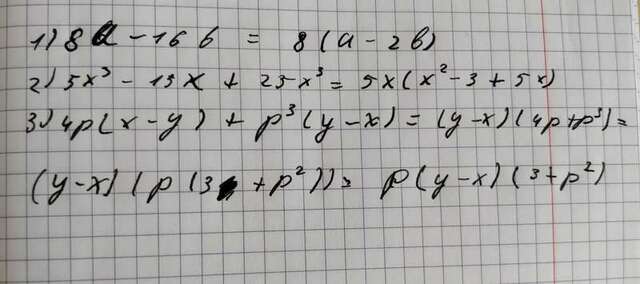 1) 8a - 16b = 8(a - 2b)
2) 5x³ - 15x + 25x³ = 5x(x² - 3 + 5x)
3) 4p(x - y) + p³(y - x) = (y - x)(4p + p³) =
(y - x)(p(3 + p²)) = p(y - x)(3 + p²)